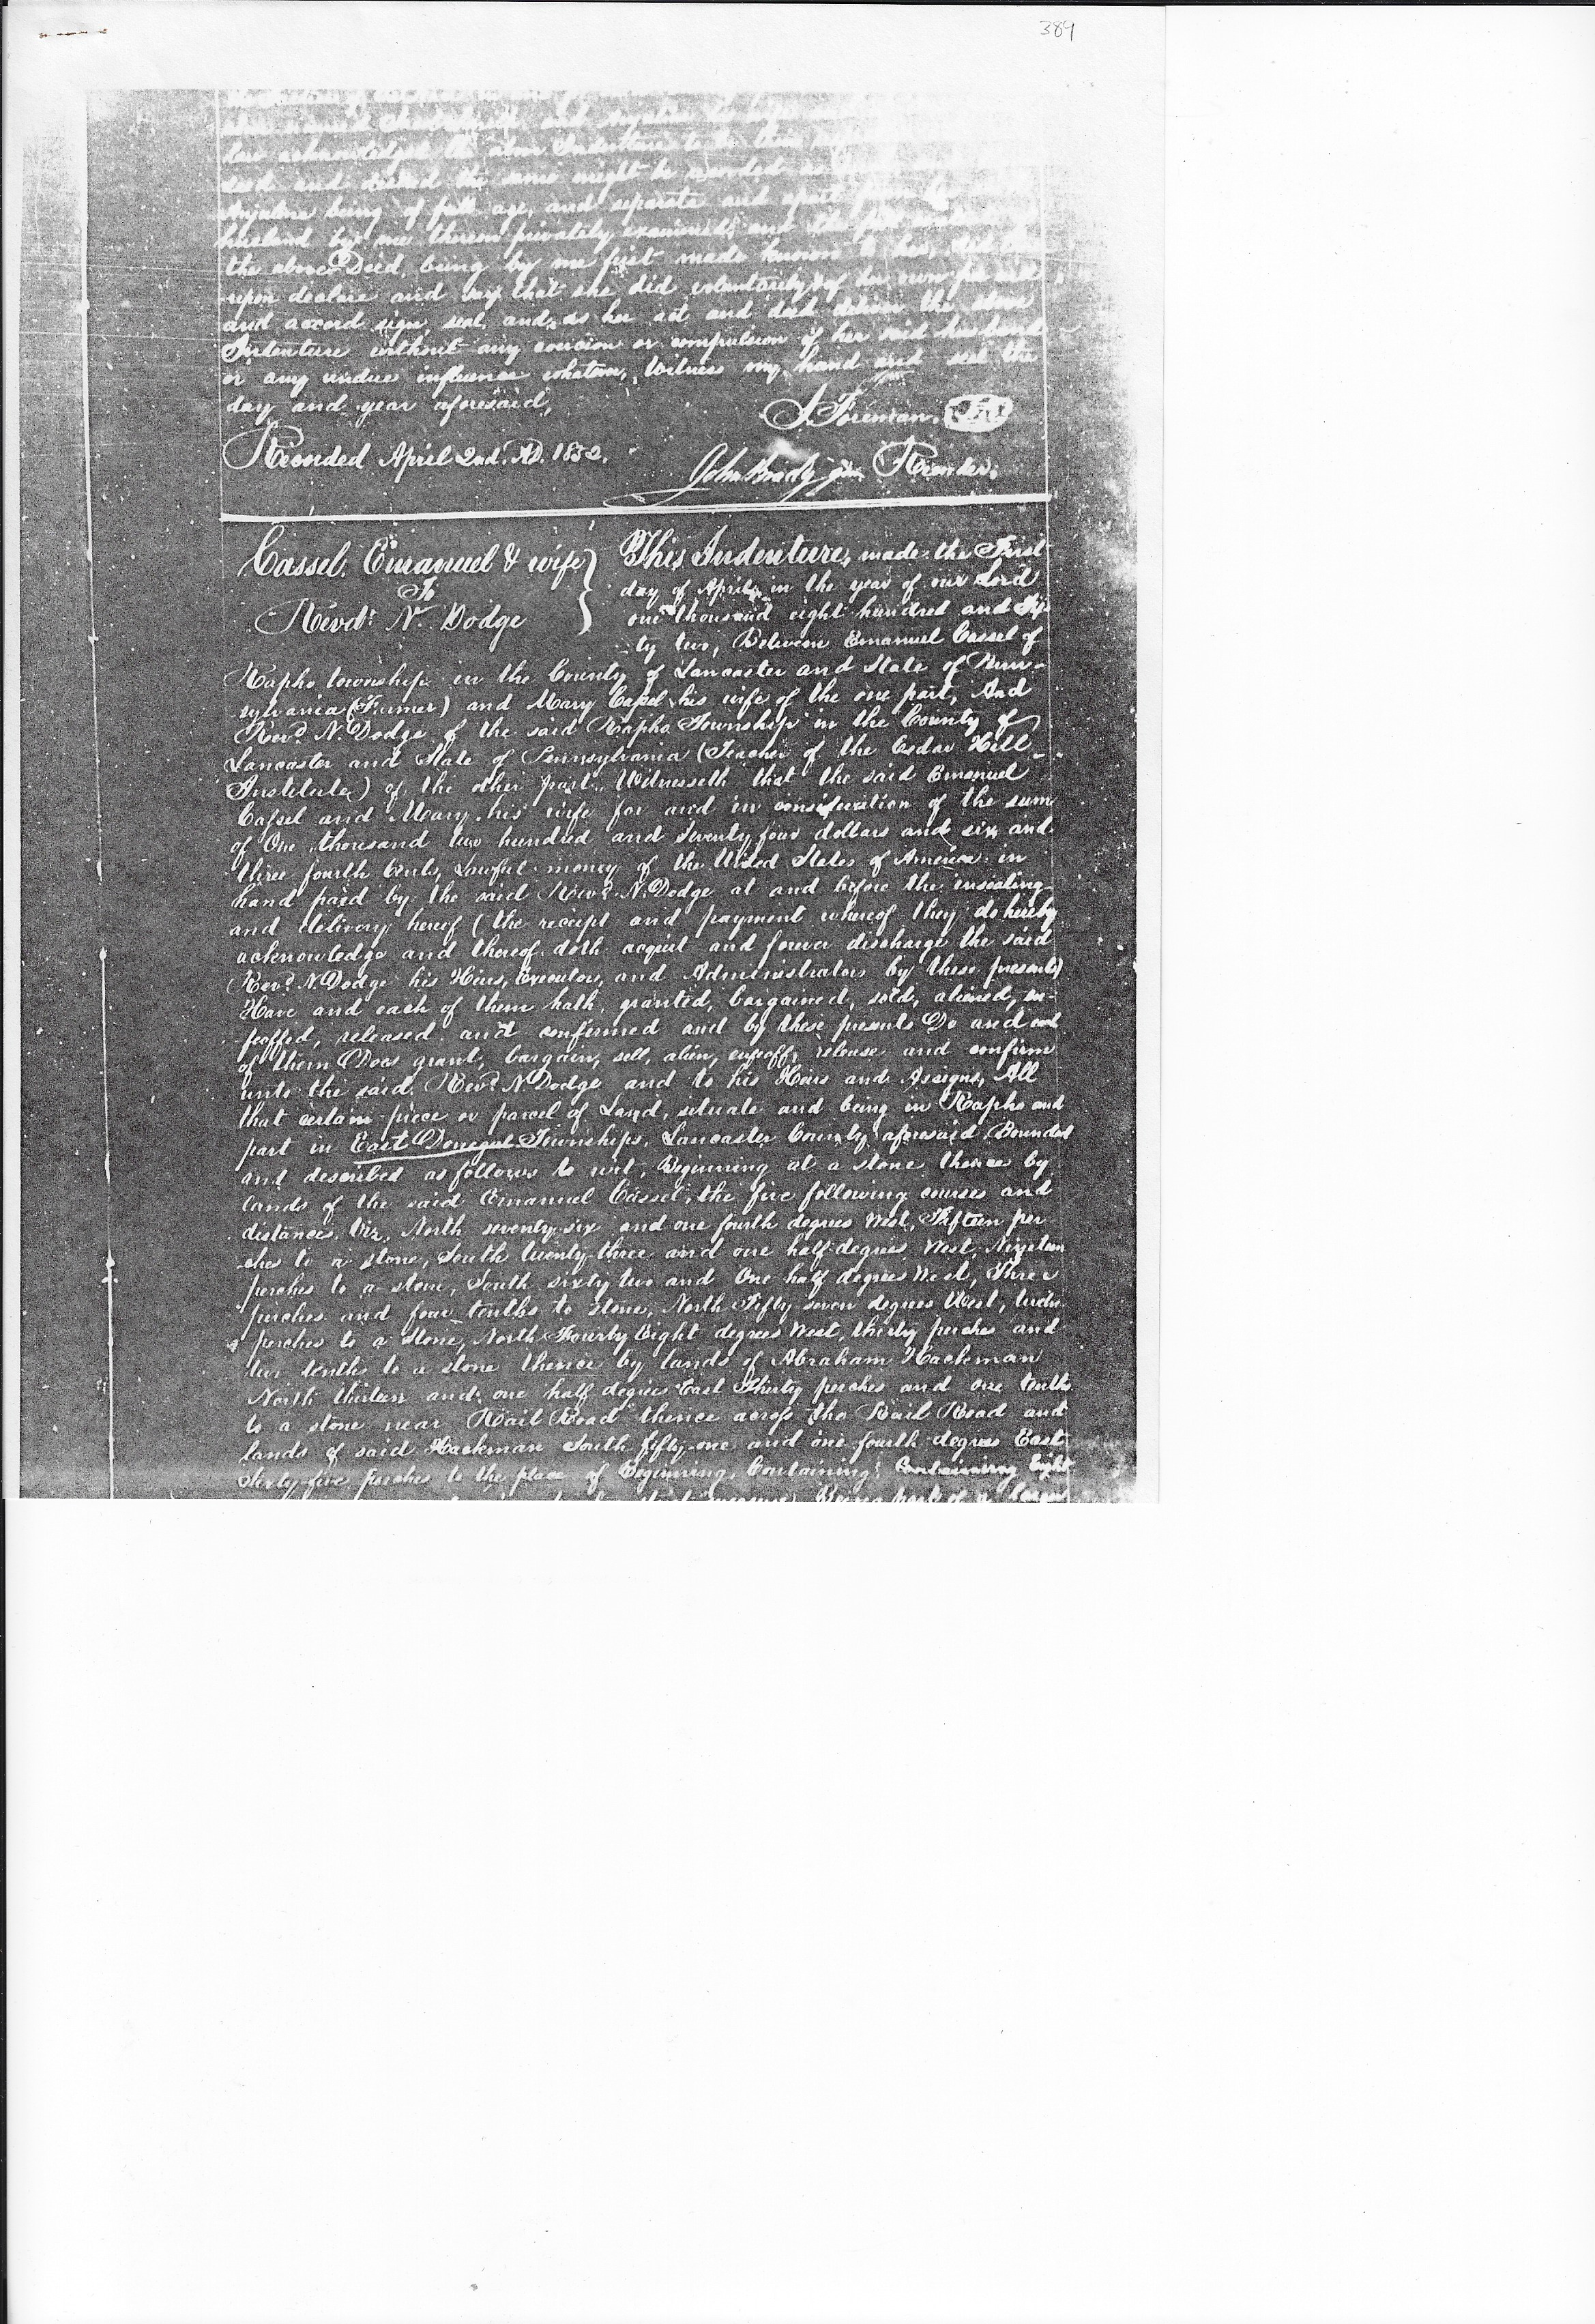 389
acknowledged the above Indenture to be their
deed and desired the same might be recorded as
being of full age, and separate and apart from
husband by me thereon privately examined, and the full contents
the above Deed, being by me first made known to her, did there
upon declare and say that she did voluntarily & of her own free will
and accord sign, seal, and as her act and deed deliver the above
Indenture without any coercion or compulsion of her said husband
or any undue influence whatever, Witness my hand and seal the
day and year aforesaid,
J. Foreman.
Recorded April 2nd. A.D. 1852.
John Brady Recorder.
Cassel, Emanuel & wife
To
Revd. N. Dodge
This Indenture, made the First
day of April, in the year of our Lord
one thousand eight hundred and Fif-
ty two, Between Emanuel Cassel of
Rapho township in the County of Lancaster and State of Penn-
sylvania (Farmer) and Mary Cassel his wife of the one part, And
Revd. N. Dodge of the said Rapho Township in the County of
Lancaster and State of Pennsylvania (Teacher of the Cedar Hill
Institute) of the other part, Witnesseth that the said Emanuel
Cassel and Mary his wife for and in consideration of the sum
of One thousand two hundred and Seventy four dollars and six and
three fourth Cents, Lawful money of the United States of America in
hand paid by the said Revd. N. Dodge at and before the insealing
and delivery hereof (the receipt and payment whereof they do hereby
acknowledge and thereof doth acquit and forever discharge the said
Revd. N Dodge his Heirs, Executors, and Administrators by these presents)
Have and each of them hath, granted, bargained, sold, aliened, en-
feoffed, released and confirmed and by these presents Do and each
of them Does grant, bargain, sell, alien, enfeoff, release and confirm
unto the said Revd. N Dodge and to his Heirs and Assigns, All
that certain piece or parcel of Land, situate and being in Rapho and
part in East Donegal Townships, Lancaster County aforesaid Bounded
and described as follows to wit, Beginning at a stone thence by
lands of the said Emanuel Cassel, the five following courses and
distances. Viz, North seventy six and one fourth degrees West, Fifteen per
ches to a stone, South twenty three and one half degrees West, Nineteen
perches to a stone, South sixty two and One half degrees West, Three
perches and four tenths to stone, North Fifty seven degrees West,
perches to a stone, North Fourty Eight degrees West, thirty perches and
two tenths to a stone thence by lands of Abraham Hackman
North thirteen and one half degrees East Thirty perches and one tenths
to a stone near Rail Road thence across the Rail Road and
lands of said Hackman South fifty one and one fourth degrees East
Sixty five perches to the place of Beginning, Containing, Containing Eight
Being part of a larger